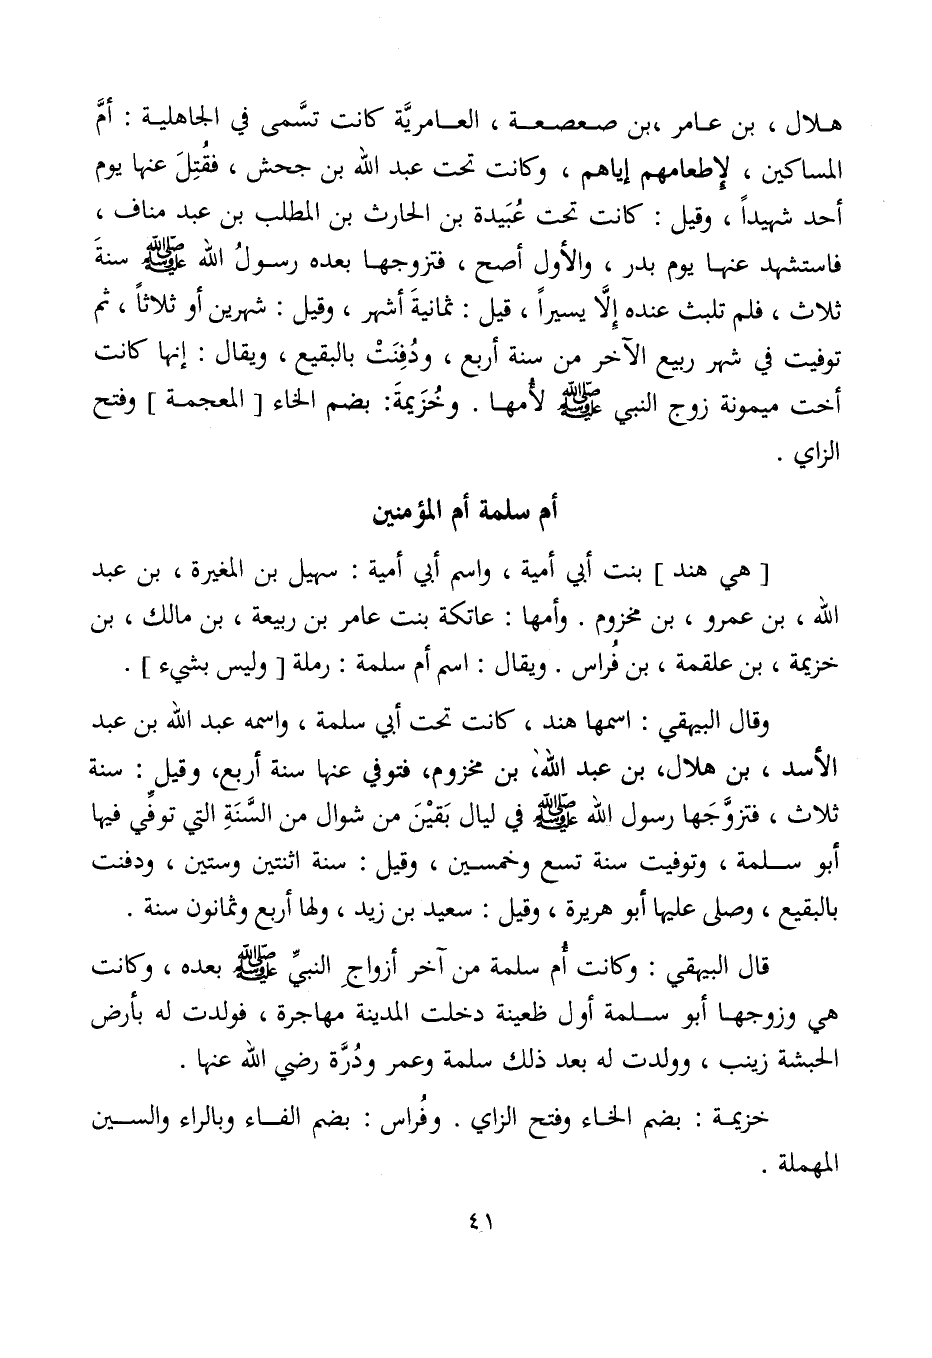 هلال ، بن عامر ،بن صعصعة ، العامريَّة كانت تسَّمى في الجاهلية : أمَّ
المساكين ، لإِطعامهم إياهم ، وكانت تحت عبد الله بن جحش ، فقُتِلَ عنها يوم
أحد شهيداً ، وقيل : كانت تحت عُبَيدة بن الحارث بن المطلب بن عبد مناف ،
فاستشهد عنها يوم بدر ، والأول أصح ، فتزوجها بعده رسولُ الله ﷺ سنةَ
ثلاث ، فلم تلبث عنده إِلَّا يسيراً ، قيل : ثمانيةَ أشهر ، وقيل : شهرين أو ثلاثاً ، ثم
توفيت في شهر ربيع الآخر من سنة أربع ، ودُفِنَتْ بالبقيع ، ويقال : إنها كانت
أخت ميمونة زوج النبي ﷺ لأُمها . وخُزَيمةَ: بضم الخاء [ المعجمة ] وفتح
الزاي .
أم سلمة أم المؤمنين
[ هي هند ] بنت أبي أمية ، واسم أبي أمية : سهيل بن المغيرة ، بن عبد
الله ، بن عمرو ، بن مخزوم . وأمها : عاتكة بنت عامر بن ربيعة ، بن مالك ، بن
خزيمة ، بن علقمة ، بن فُراس . ويقال : اسم أم سلمة : رملة [ وليس بشيء ] .
وقال البيهقي : اسمها هند ، كانت تحت أبي سلمة ، واسمه عبد الله بن عبد
الأسد ، بن هلال، بن عبد الله، بن مخزوم، فتوفي عنها سنة أربع، وقيل : سنة
ثلاث ، فتزوَّجَها رسول الله ﷺ في ليال بَقيْنَ من شوال من السَّنَةِ التي توفِّي فيها
أبو سلمة ، وتوفيت سنة تسع وخمسين ، وقيل : سنة اثنتين وستين ، ودفنت
بالبقيع ، وصلى عليها أبو هريرة ، وقيل : سعيد بن زيد ، ولها أربع وثمانون سنة .
قال البيهقي : وكانت أُم سلمة من آخر أزواجِ النبيِّ ﷺ بعده ، وكانت
هي وزوجها أبو سلمة أول ظعينة دخلت المدينة مهاجرة ، فولدت له بأرض
الحبشة زينب ، وولدت له بعد ذلك سلمة وعمر ودُرَّة رضي الله عنها .
خزيمة : بضم الخاء وفتح الزاي . وفُراس : بضم الفاء وبالراء والسين
المهملة .
٤١